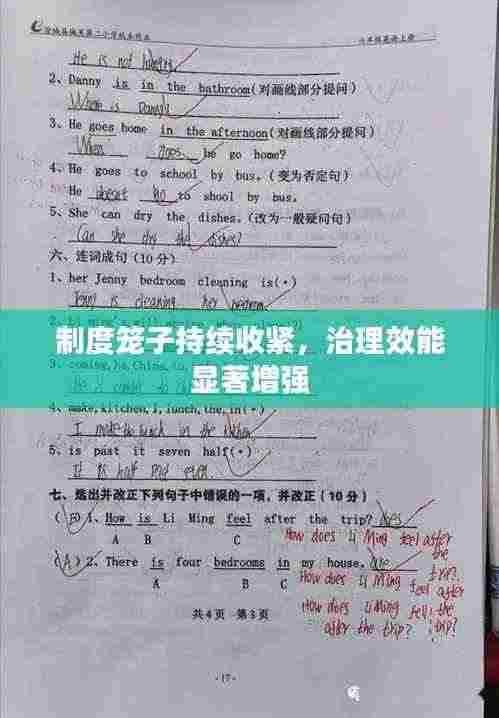 He is not hungry.
2、Danny is in the bathroom(对画线部分提问)
Where is Danny?
3、He goes home in the afternoon(对画线部分提问)
When does he go home?
4、He goes to school by bus。(变为否定句)
He doesn't go to shool by bus。
5、She can dry the dishes。(改为一般疑问句)
Can she dry the dishes?
六、连词成句(10分)
1、her Jenny bedroom cleaning is(·)
Jenny is cleaning her bedroom
制度笼子持续收紧，治理效能
显著增强
4、make,kitchen,I,lunch,the,in(·)
I make the lunch in the kitchen
5、is past it seven half(·)
It is half past seven.
七、选出并改正下列句子中错误的一项，并改正(10分)
1、How is Li Ming feel after the trip? does
A B C
(A) 2、There is four bedrooms in my house。 are
A B C
How does Li Ming feel after
the
trip?
How does Li Ming feel after
How does Li Ming feel the
after the trip? trip?
共4页 第3页
·17·